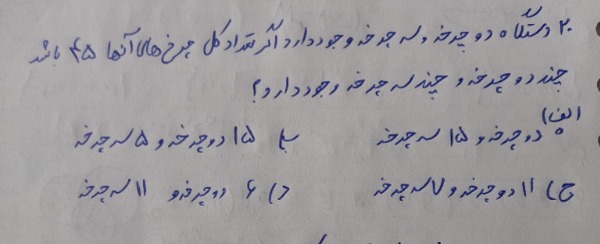 ۲۰ دستگاه دوچرخه و سه چرخه وجود دارد اگر تعداد کل چرخ های آنها ۴۵ باشد
چند دوچرخه و چند سه چرخه وجود دارد؟
الف) ۵ دوچرخه و ۱۵ سه چرخه ب) ۱۵ دوچرخه و ۵ سه چرخه
ج) ۱۱ دوچرخه و ۷ سه چرخه د) ۶ دوچرخه و ۱۱ سه چرخه